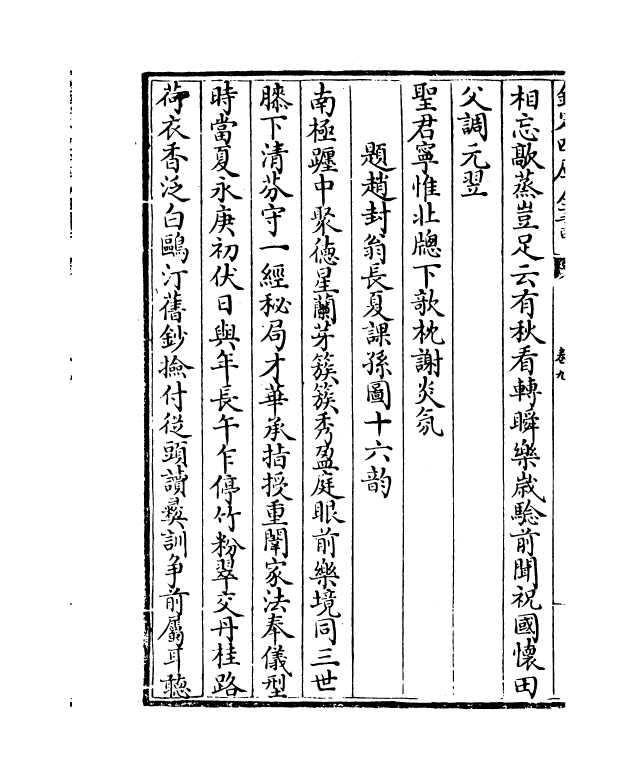 相忘歊蒸豈足云有秋看轉瞬樂歳騐前聞祝國懷田
父調元翌
聖君寧惟北牕下欹枕謝炎氛
題趙封翁長夏課孫圖十六韵
南極躔中聚徳星蘭芽簇簇秀盈庭眼前樂境同三世
膝下清芬守一經秘局才華承指授重闈家法奉儀型
時當夏永庚初伏日與年長午乍停竹粉翠交丹桂路
荷衣香泛白鷗汀舊鈔撿付從頭讀彝訓争前屬耳聽
卷九